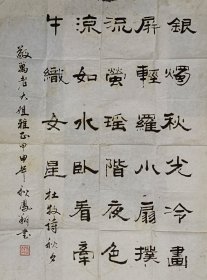 銀燭秋光冷畫
屏輕羅小扇撲
流螢瑶階夜色
涼如水卧看牽
牛織女星 杜牧诗秋夕
老大雅正甲申年秋書